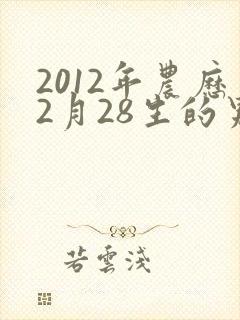 2012年農歷
2月28生的
若雲淺